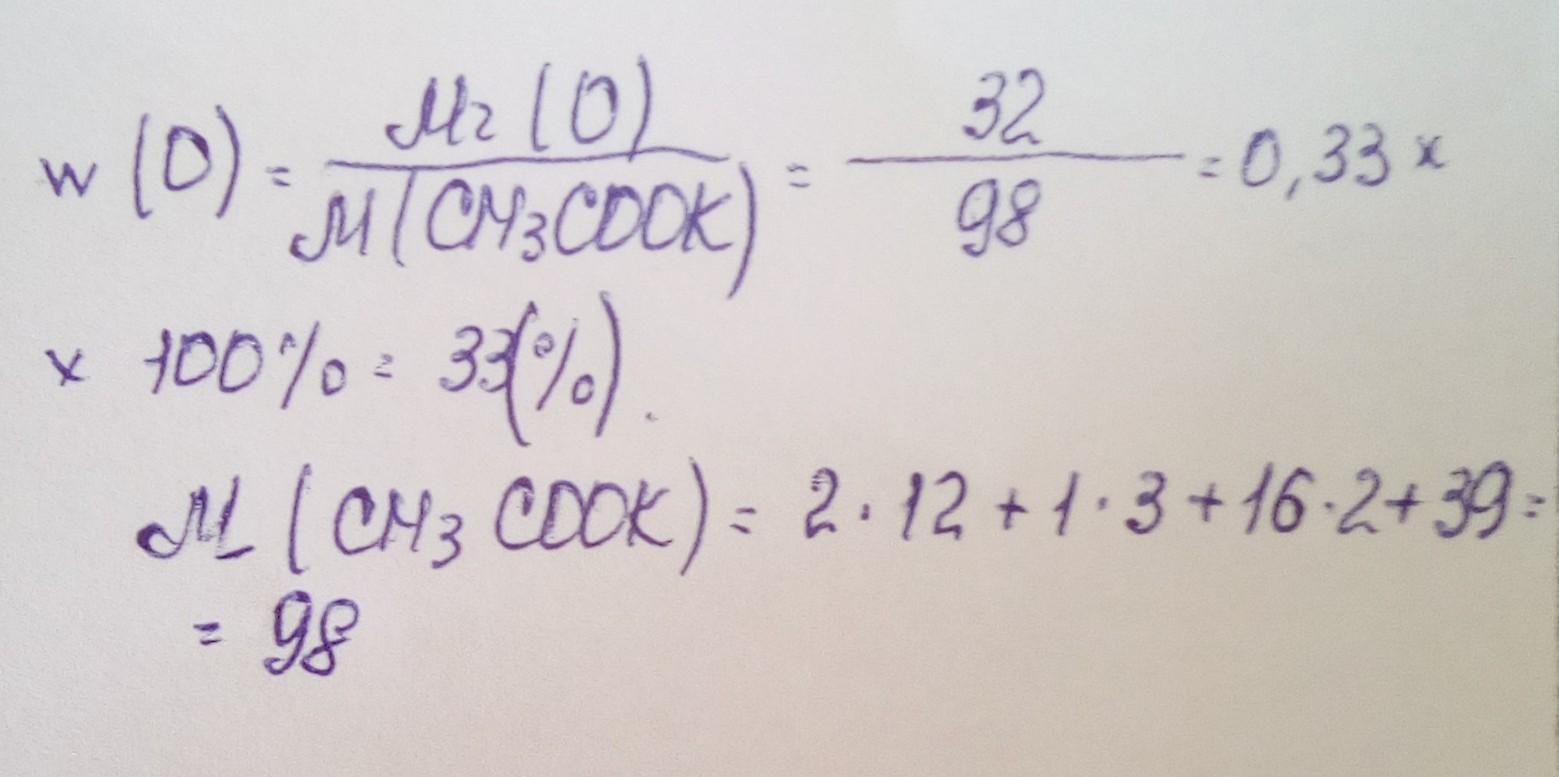 w (O) = Mr (O) / M (CH₃COOK) = 32 / 98 = 0,33 x
x 100% = 33(%).
M (CH₃COOK) = 2 · 12 + 1 · 3 + 16 · 2 + 39 =
= 98